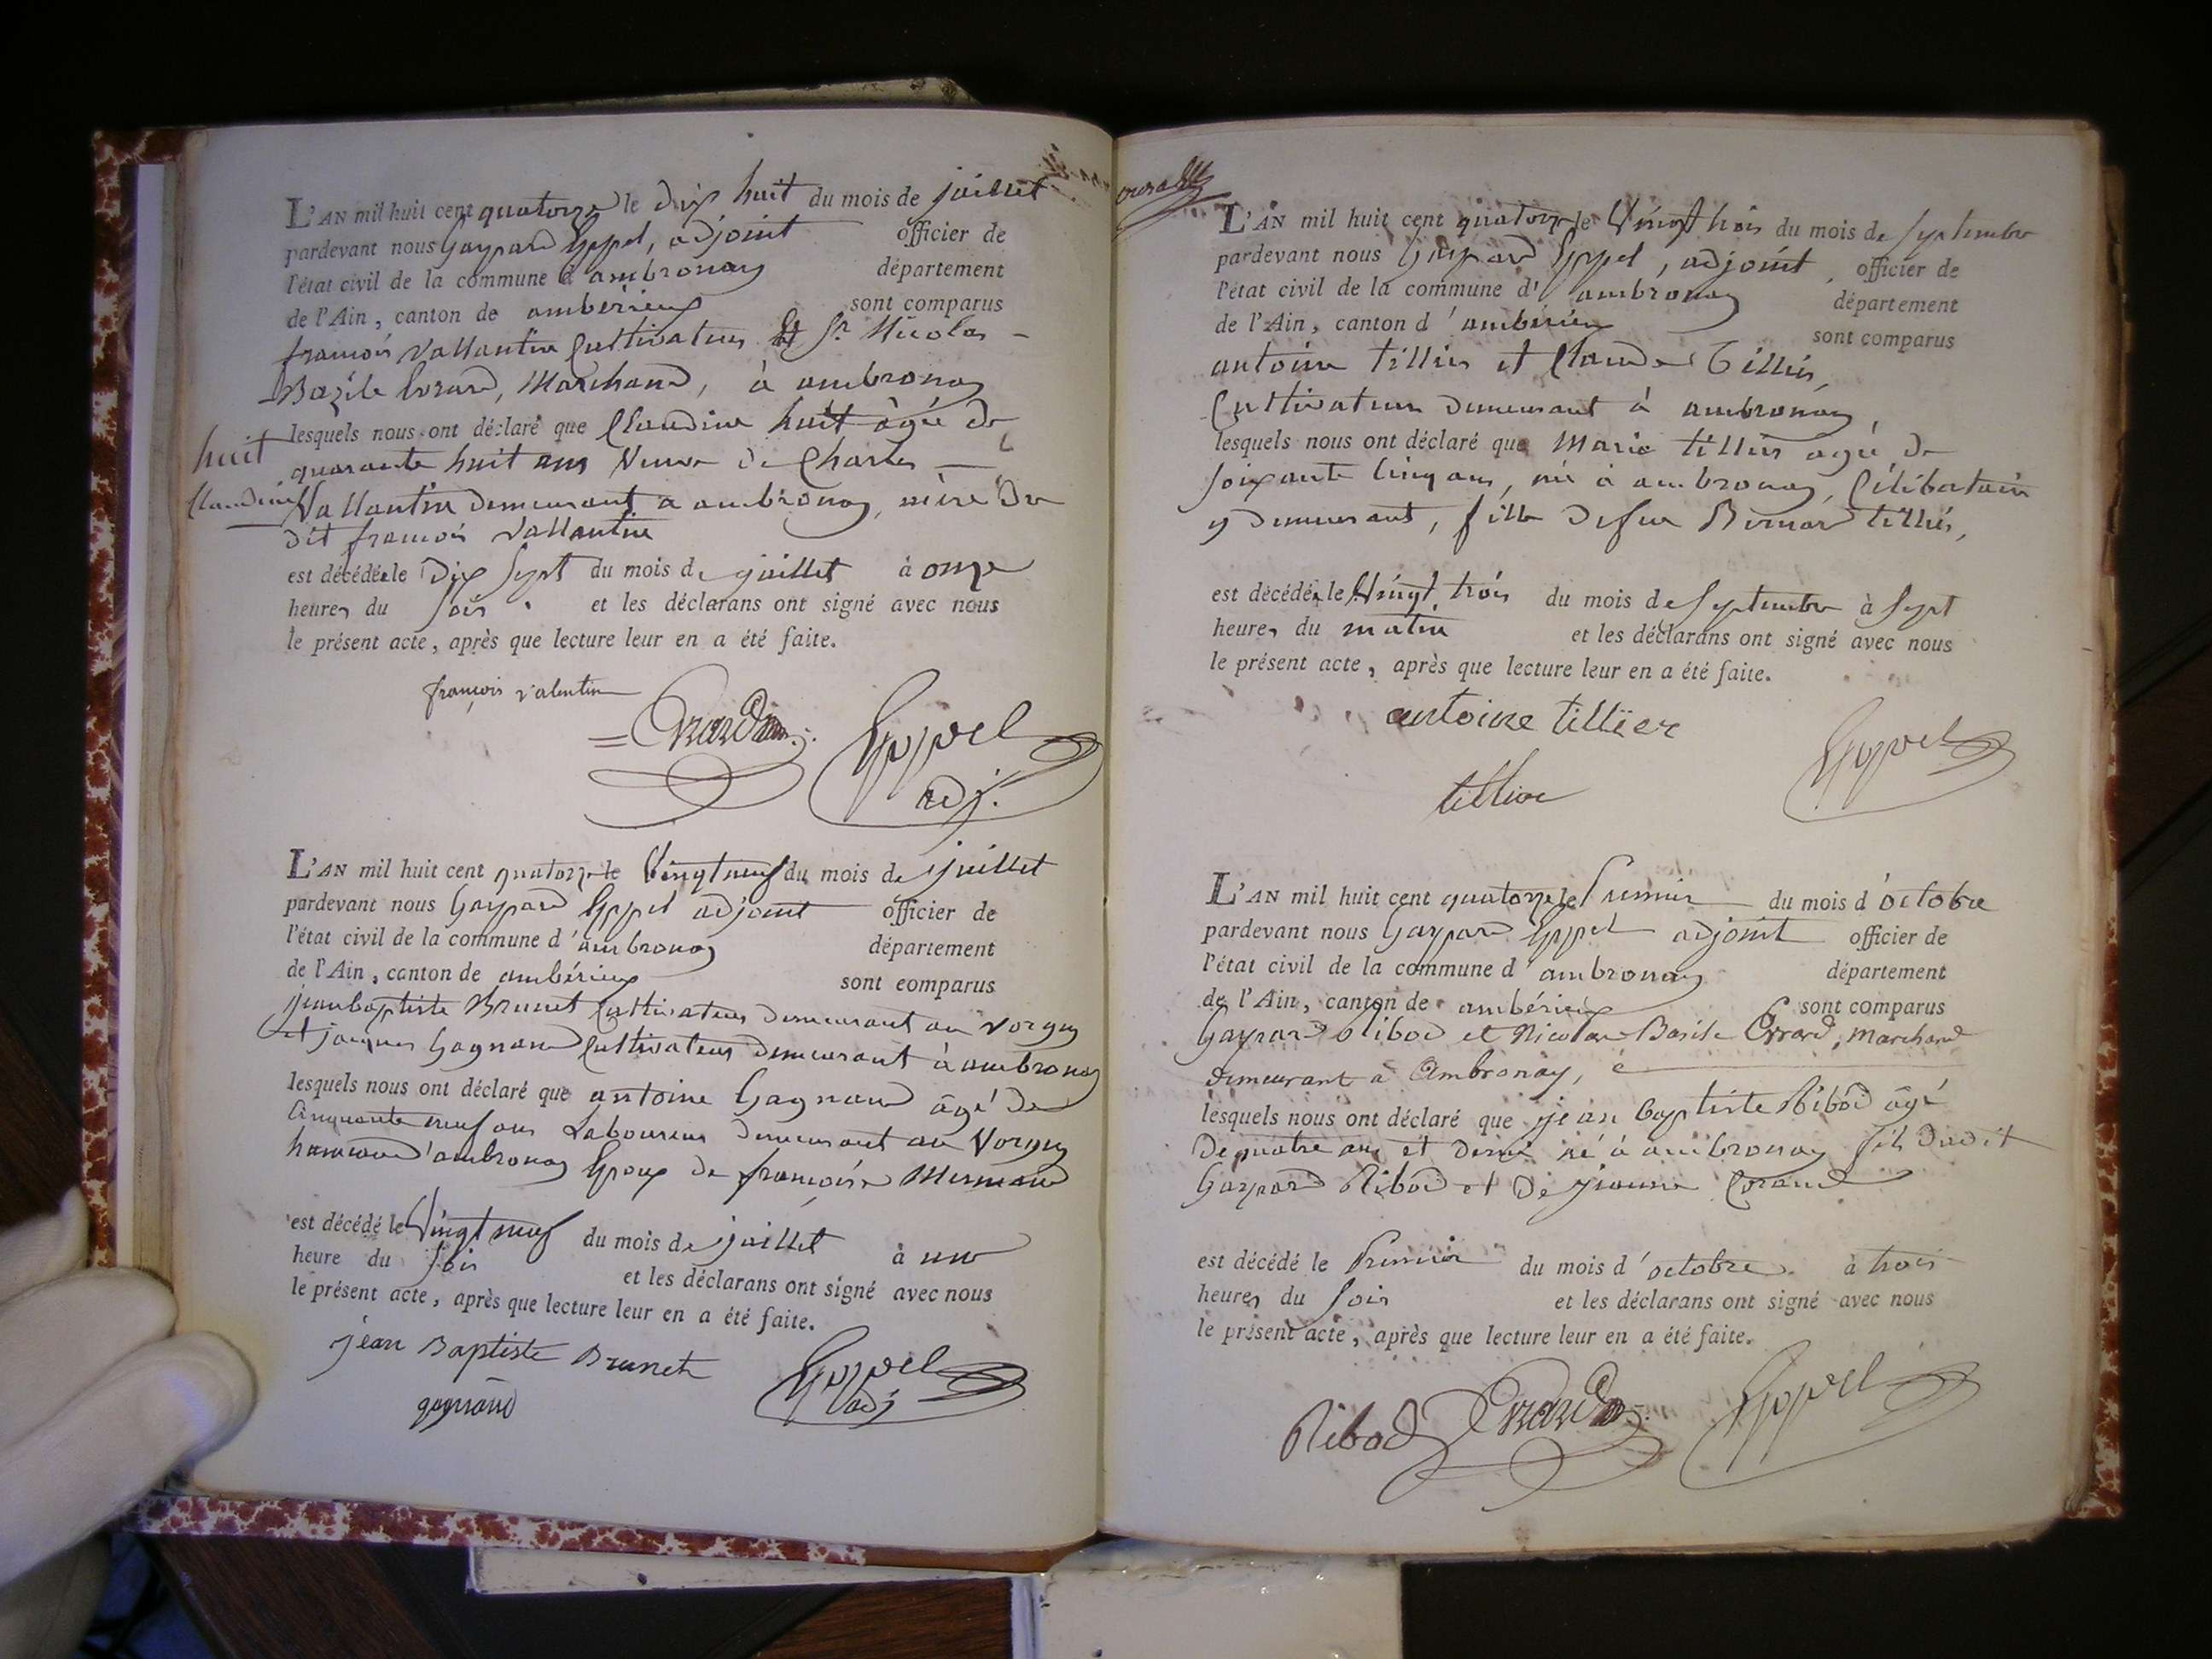 L'AN mil huit cent quatorze le dix huit du mois de juillet
pardevant nous Gaspard Eppel, adjoint officier de
l'état civil de la commune d'ambronay département
de l'Ain, canton de amberieux sont comparus
francois Vallantin Cultivateur Et Sr Nicolas
Bazile Errard, Marchand, à ambronay
lesquels nous ont déclaré que Claudine huit âgée de
quarante huit ans Veuve de Charles
huit
Claudine
Vallantin demeurant a ambronay, mère du
dit francois Vallantin
est décédée le Dix Sept du mois de juillet à onze
heures du soir et les déclarans ont signé avec nous
le présent acte, après que lecture leur en a été faite.
françois valentin
Errard
Eppel
adj.
L'AN mil huit cent quatorze le Vingt neuf du mois de juillet
pardevant nous Gaspard Eppel adjoint officier de
l'état civil de la commune d'ambronay département
de l'Ain, canton de ambérieux sont comparus
jeanbaptiste Brunet Cultivateur demeurant au Vorgey
et jacques Gagnand Cultivateur demeurant à ambronay
lesquels nous ont déclaré que antoine Gagnand âgé de
Cinquante neuf ans Laboureur demeurant au Vorgey
hameau d'ambronay Epoux de françoise Mermand
est décédé le Vingt neuf du mois de juillet à une
heure du soir et les déclarans ont signé avec nous
le présent acte, après que lecture leur en a été faite.
jean Baptiste Brunet
gagnand
Eppel
adj
L'AN mil huit cent quatorze le Vingt trois du mois de septembre
pardevant nous Gaspard Eppel, adjoint officier de
l'état civil de la commune d'ambronay département
de l'Ain, canton d'amberieu sont comparus
antoine tillier et Claude Tillier,
Cultivateurs demeurant à ambronay
lesquels nous ont déclaré que Marie tillier agée de
soixante Cinq ans, née à ambronay, Célibataire
y demeurant, fille de feu Bernard tillier,
est décédée le Vingt trois du mois de septembre à sept
heures du matin et les déclarans ont signé avec nous
le présent acte, après que lecture leur en a été faite.
antoine tillier
Eppel
tillier
L'AN mil huit cent quatorze le Premier du mois d'octobre
pardevant nous Gaspard Eppel adjoint officier de
l'état civil de la commune d'ambronay département
de l'Ain, canton de ambérieux sont comparus
Gaspard Ribod et Nicolas Basile Errard, marchand
demeurant à Ambronay,
lesquels nous ont déclaré que jean baptiste Ribod âgé
De quatre ans et demi né à ambronay fils dudit
Gaspard Ribod et De jeanne
est décédé le Premier du mois d'octobre à trois
heures du soir et les déclarans ont signé avec nous
le présent acte, après que lecture leur en a été faite.
Ribod Errard Eppel